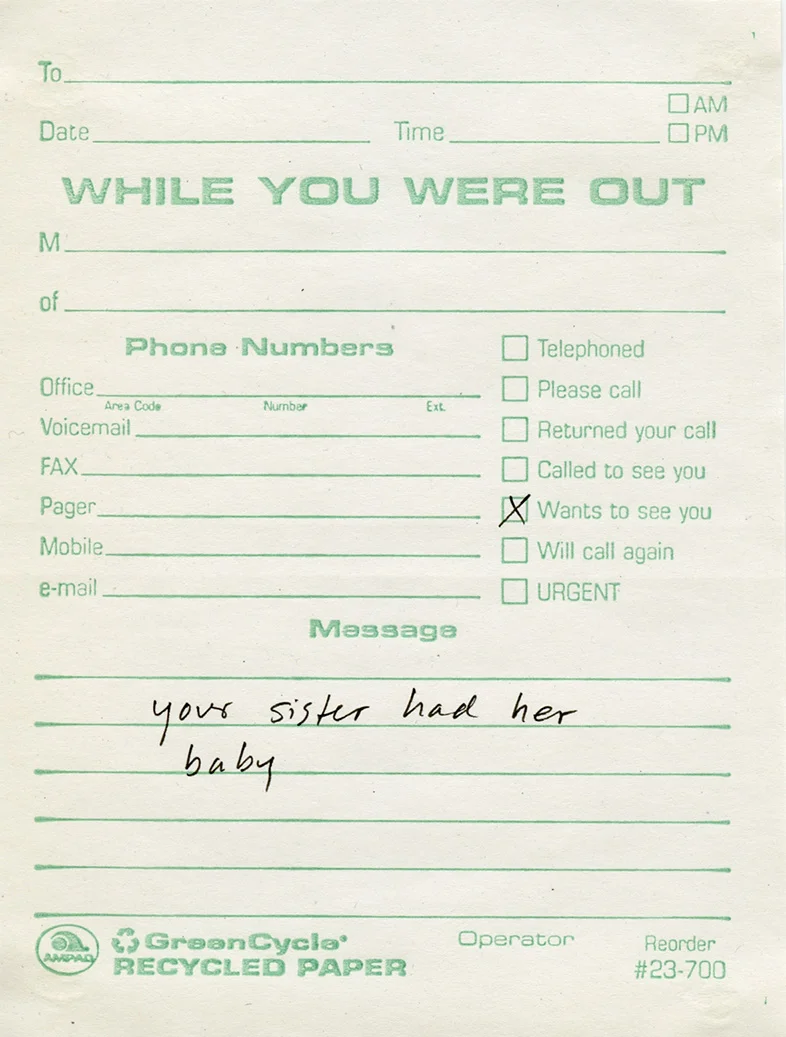 To
AM
Date Time PM
WHILE YOU WERE OUT
M
of
Phone Numbers
Telephoned
Office Please call
Area Code Number Ext.
Voicemail Returned your call
FAX Called to see you
Pager X Wants to see you
Mobile Will call again
e-mail URGENT
Message
your sister had her
baby
GreenCycle® Operator Reorder
AMPAD RECYCLED PAPER #23-700